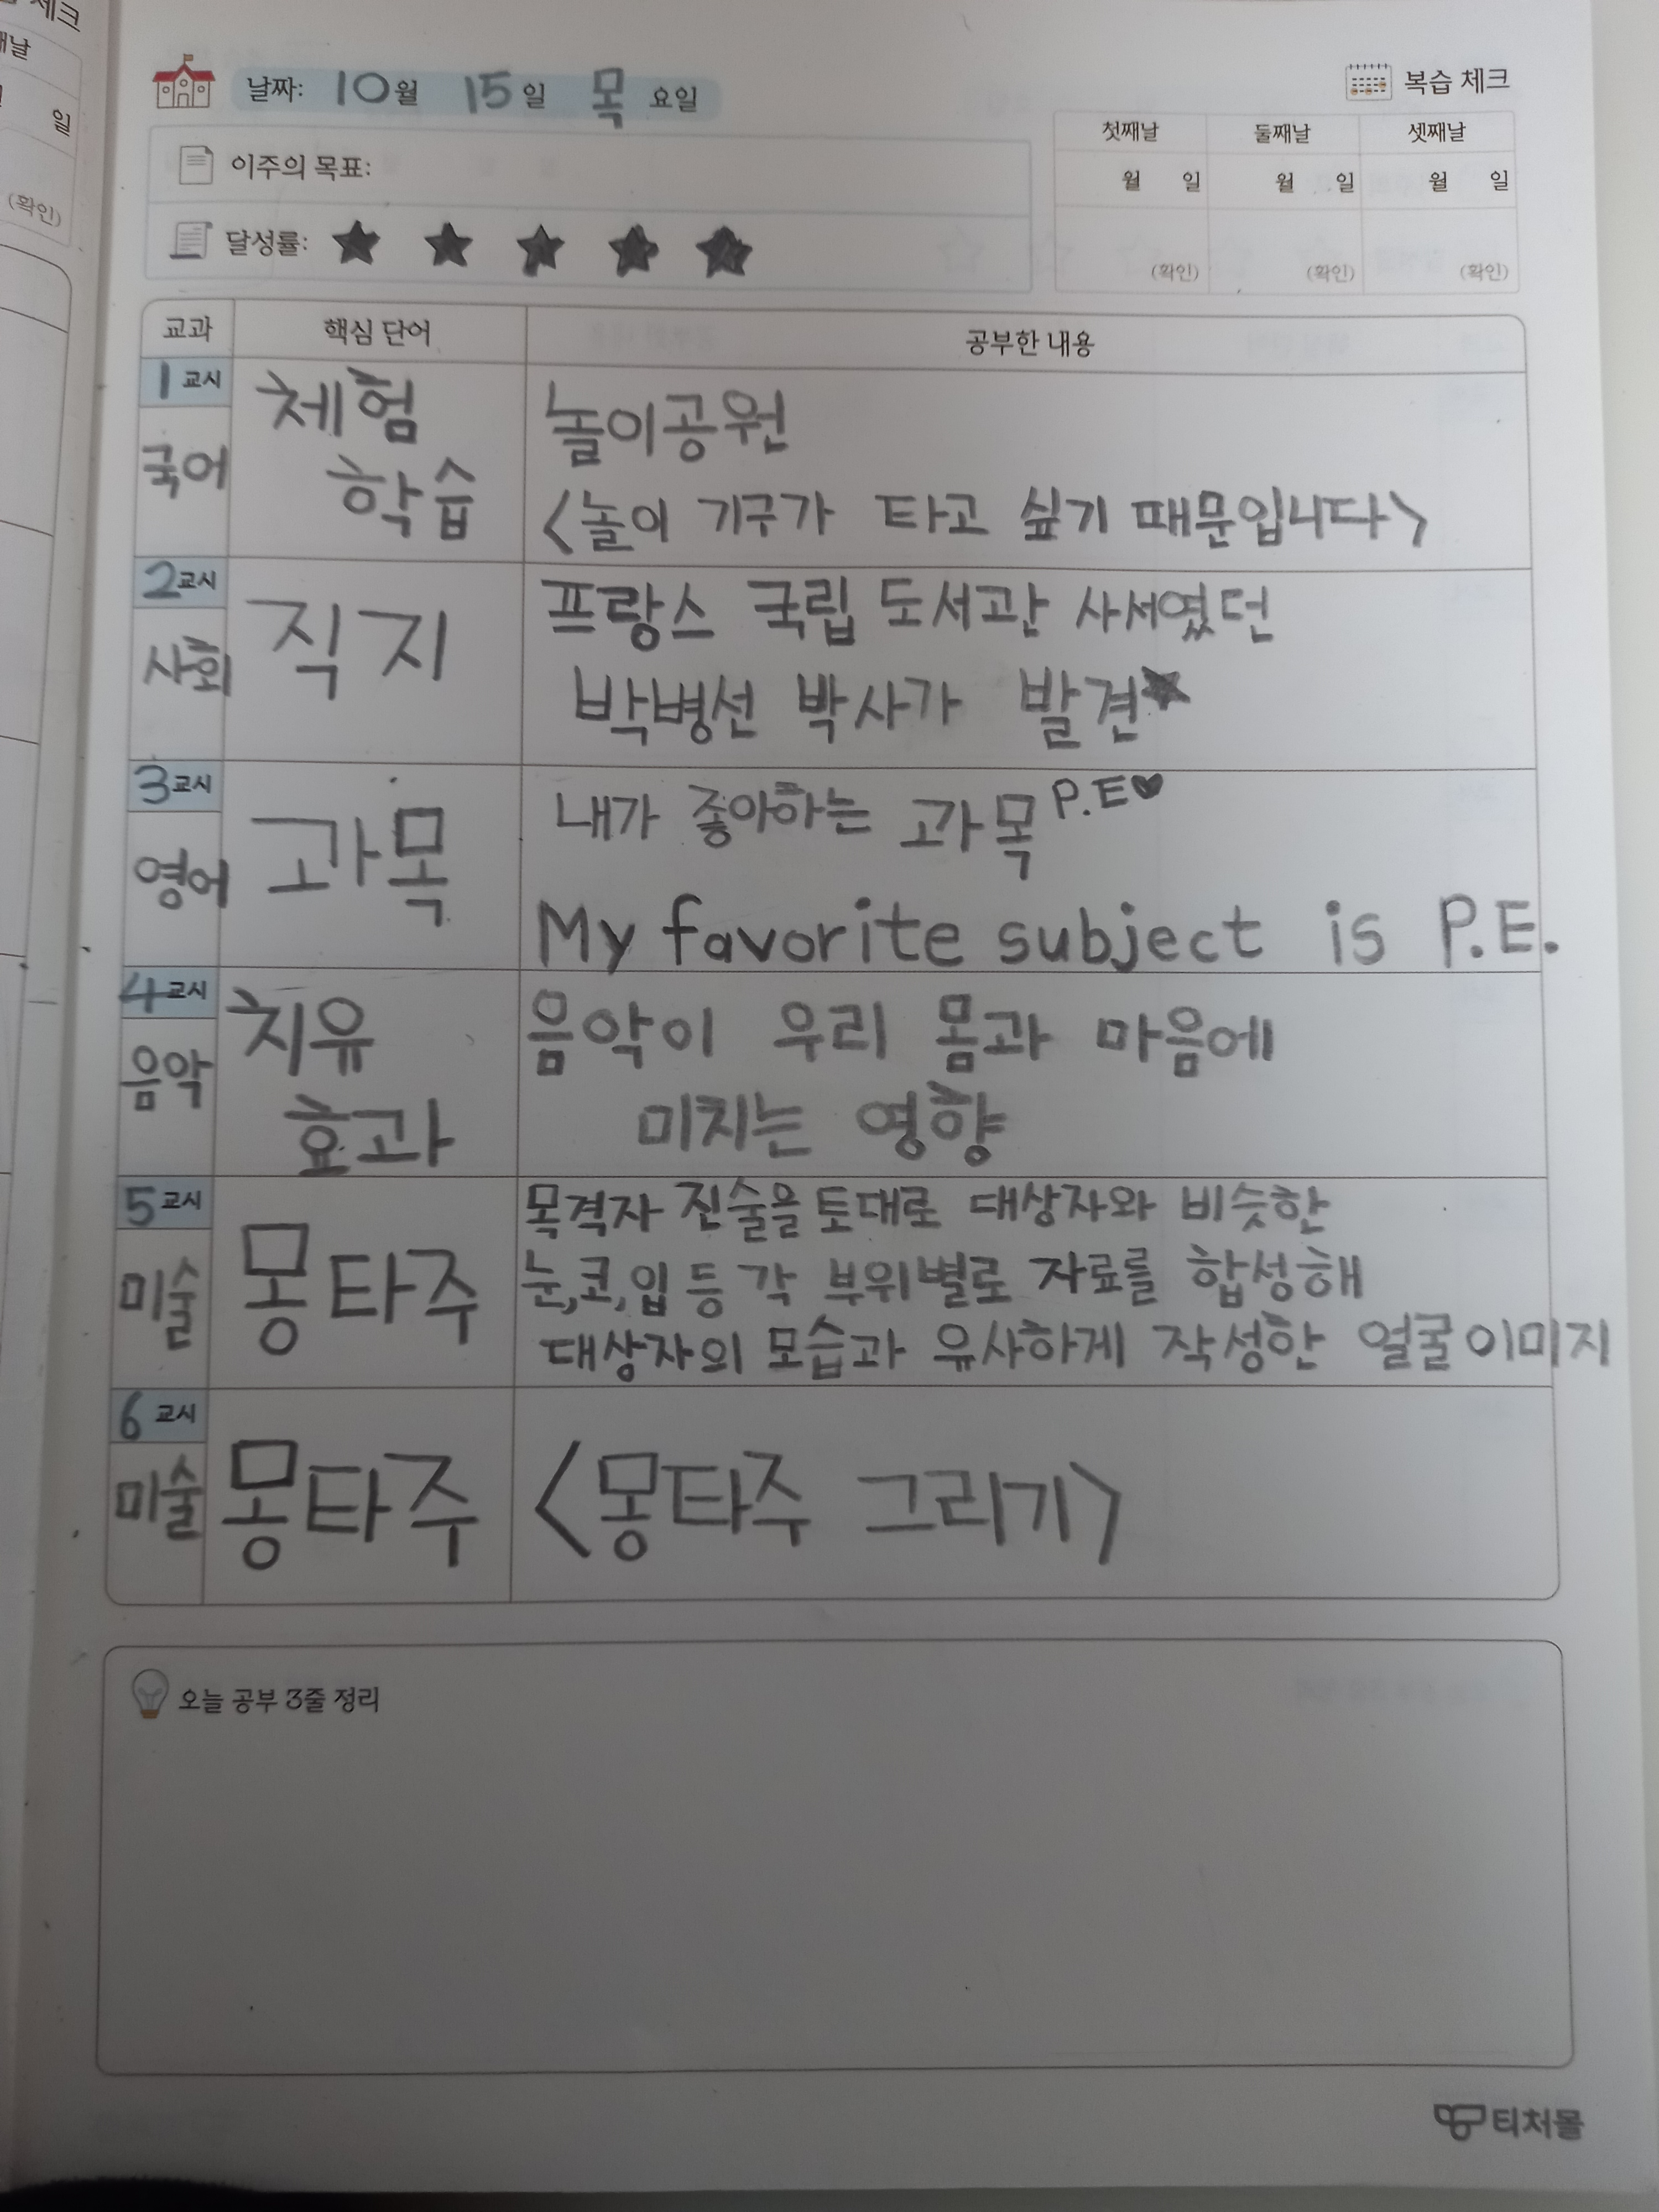 체크
째날
일
일
(확인)
날짜: 10월 15일 목요일
복습 체크
이주의 목표:
달성률: ★ ★ ★ ★ ★
첫째날 둘째날 셋째날
월 일 월 일 월 일
(확인) (확인) (확인)
교과 핵심 단어 공부한 내용
1교시
국어
체험
학습
놀이공원
<놀이 기구가 타고 싶기 때문입니다>
2교시
사회
직지
프랑스 국립 도서관 사서였던
박병선 박사가 발견★
3교시
영어
과목
내가 좋아하는 과목 P.E♥
My favorite subject is P.E.
4교시
음악
치유
효과
음악이 우리 몸과 마음에
미치는 영향
5교시
미술
몽타주
목격자 진술을 토대로 대상자와 비슷한
눈,코,입 등 각 부위별로 자료를 합성해
대상자의 모습과 유사하게 작성한 얼굴이미지
6교시
미술
몽타주
<몽타주 그리기>
오늘 공부 3줄 정리
티처몰